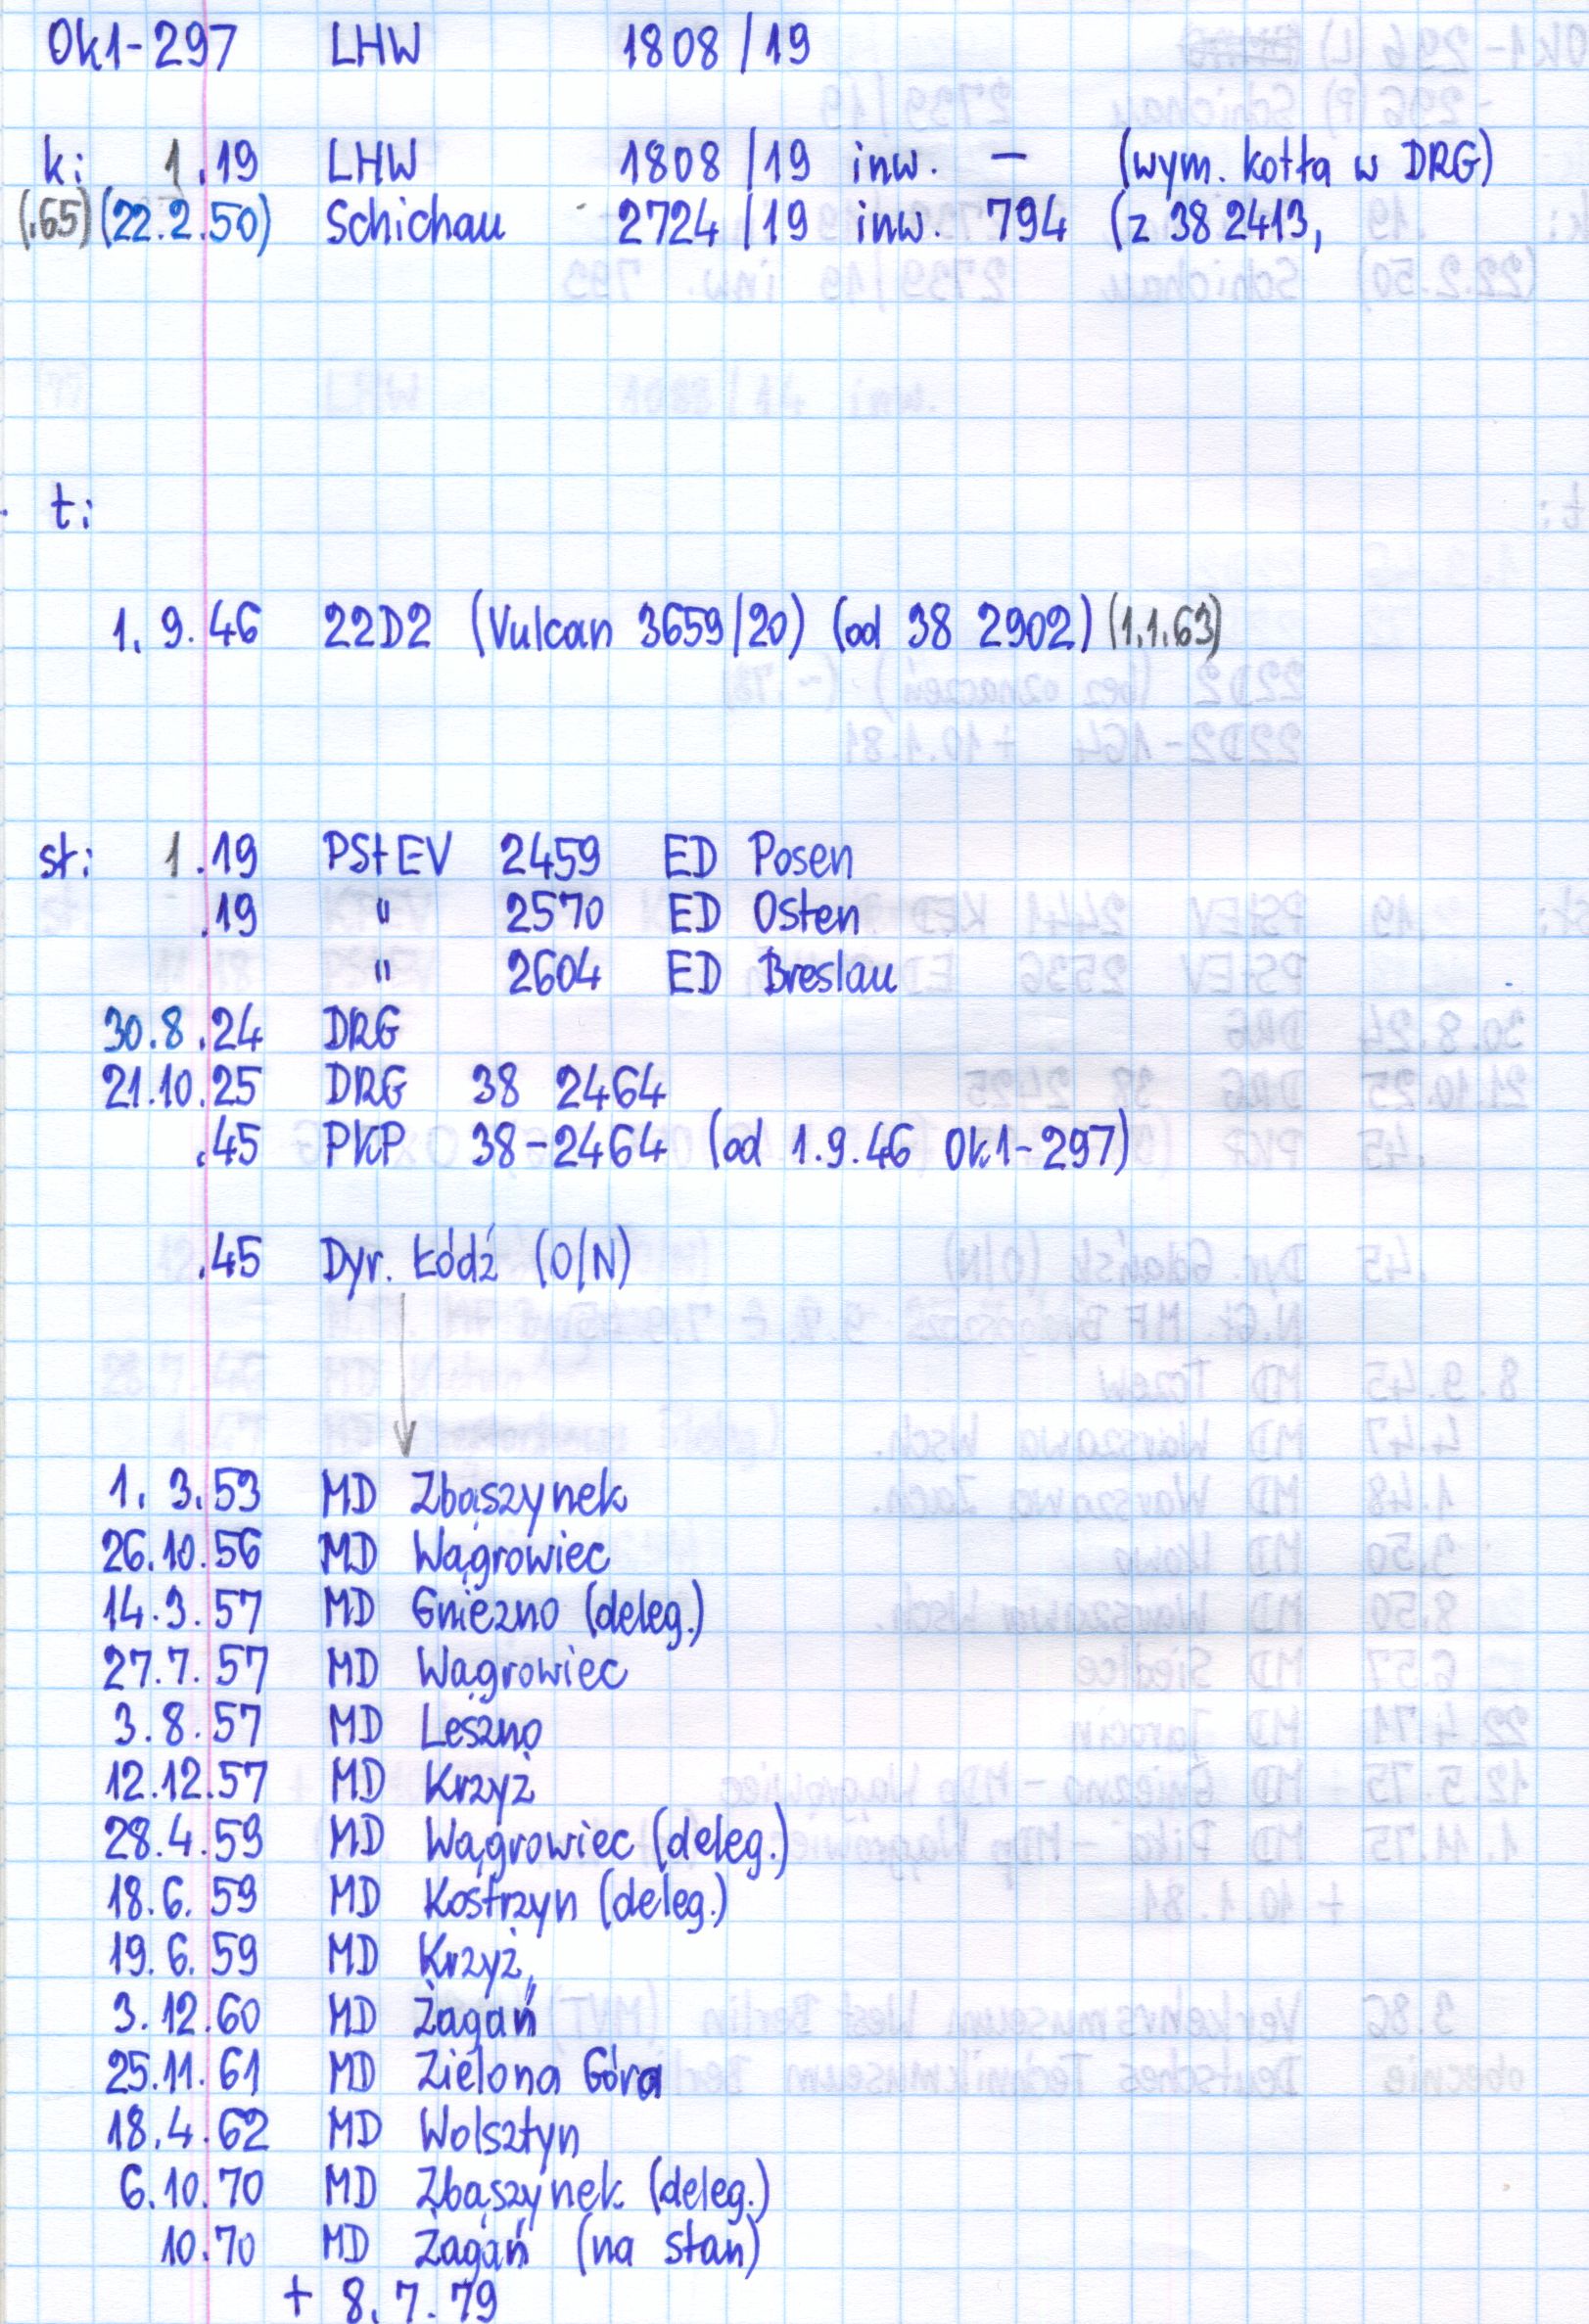 Ok1-297 LHW 1808/19
k: 1.19 LHW 1808/19 inw. – (wym. kotła w DRG)
(.65) (22.2.50) Schichau 2724/19 inw. 794 (z 38 2413,
t:
1.9.46 22D2 (Vulcan 3659/20) (od 38 2902) (1.1.63)
st: 1.19 PStEV 2459 ED Posen
.19 " 2570 ED Osten
" 2604 ED Breslau
30.8.24 DRG
21.10.25 DRG 38 2464
.45 PKP 38-2464 (od 1.9.46 Ok1-297)
.45 Dyr. Łódź (O/N)
1.3.53 MD Zbąszynek
26.10.56 MD Wągrowiec
14.3.57 MD Gniezno (deleg.)
27.7.57 MD Wągrowiec
3.8.57 MD Leszno
12.12.57 MD Krzyż
28.4.59 MD Wągrowiec (deleg.)
18.6.59 MD Kostrzyn (deleg.)
19.6.59 MD Krzyż
3.12.60 MD Żagań
25.11.61 MD Zielona Góra
18.4.62 MD Wolsztyn
6.10.70 MD Zbąszynek (deleg.)
10.70 MD Żagań (na stan)
+ 8.7.79